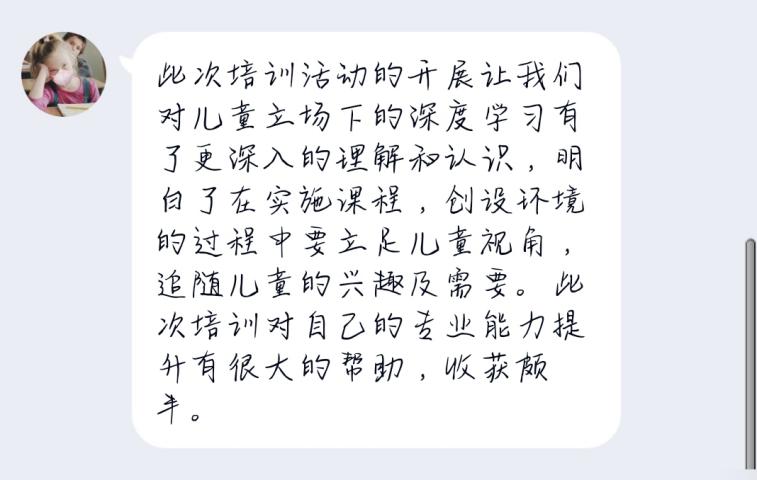 此次培训活动的开展让我们
对儿童立场下的深度学习有
了更深入的理解和认识，明
白了在实施课程，创设环境
的过程中要立足儿童视角，
追随儿童的兴趣及需要。此
次培训对自己的专业能力提
升有很大的帮助，收获颇
丰。